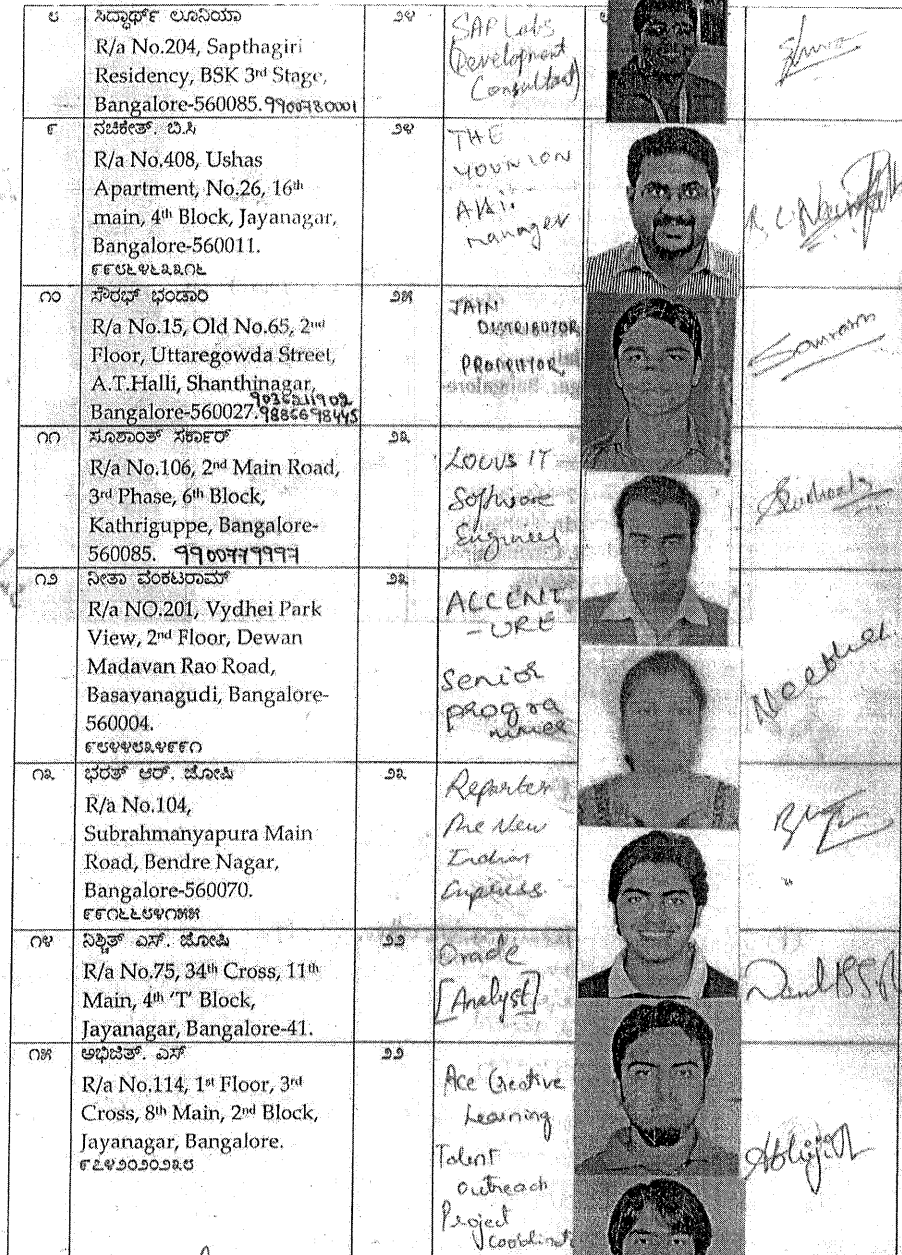 ೮
ಸಿದ್ಧಾರ್ಥ್ ಲೂನಿಯಾ
೨೪
R/a No.204, Sapthagiri
Residency, BSK 3rd Stage,
Bangalore-560085.
SAP Labs
(Development
Consultant)
೯
ನಚಿಕೇತ್. ಬಿ.ಸಿ
೨೪
R/a No.408, Ushas
Apartment, No.26, 16th
main, 4th Block, Jayanagar,
Bangalore-560011.
THE
manager
೧೦
ಸೌರಭ್ ಭಂಡಾರಿ
೨೫
R/a No.15, Old No.65, 2nd
Floor, Uttaregowda Street,
A.T.Halli, Shanthinagar,
Bangalore-560027.
JAIN
DISTRIBUTOR
೧೧
ಸೂಶಾಂತ್ ಸರ್ಕಾರ್
೨೩
R/a No.106, 2nd Main Road,
3rd Phase, 6th Block,
Kathriguppe, Bangalore-
560085. 9900779997
LOCUS IT
Software
Engineer
೧೨
ನೀತಾ ವೆಂಕಟರಾಮ್
೨೩
R/a NO.201, Vydhei Park
View, 2nd Floor, Dewan
Madavan Rao Road,
Basavanagudi, Bangalore-
560004.
೯೮೪೪೮೩೪೯೯೧
ACCENT
-URE
Senior
progra
mmer
Neetha
೧೩
ಭರತ್ ಆರ್. ಜೋಷಿ
೨೩
R/a No.104,
Subrahmanyapura Main
Road, Bendre Nagar,
Bangalore-560070.
Reporter
The New
Indian
Express
೧೪
ನಿಶ್ಚಿತ್ ಎಸ್. ಜೋಷಿ
೨೨
R/a No.75, 34th Cross, 11th
Main, 4th 'T' Block,
Jayanagar, Bangalore-41.
Oracle
[Analyst]
೧೫
ಅಭಿಜಿತ್. ಎಸ್
೨೨
R/a No.114, 1st Floor, 3rd
Cross, 8th Main, 2nd Block,
Jayanagar, Bangalore.
೯೭೪೨೦೨೦೨೩೮
Ace Creative
Learning
Talent
Outreach
Project
Abhijit